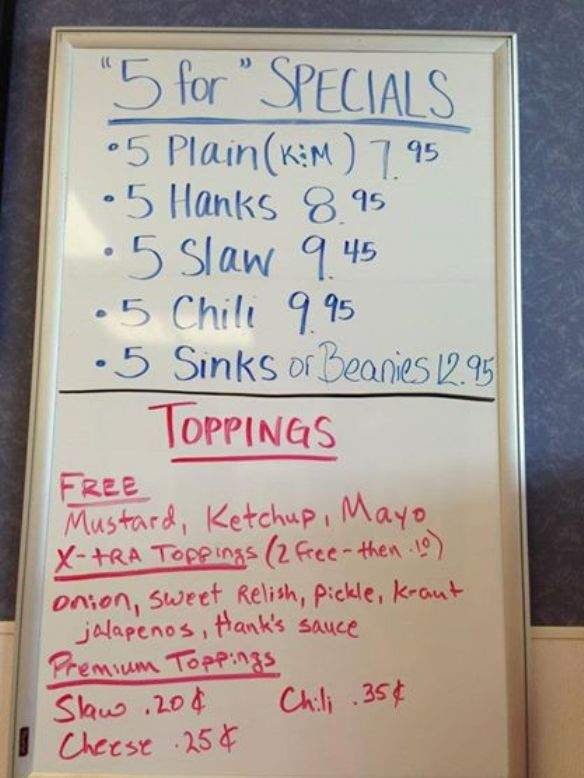 "5 for" SPECIALS
• 5 Plain (K:M) 7.95
• 5 Hanks 8.95
• 5 Slaw 9.45
• 5 Chili 9.95
• 5 Sinks or Beanies 12.95
TOPPINGS
FREE
Mustard, Ketchup, Mayo
X-tRA Toppings (2 free - then .10)
onion, sweet Relish, pickle, kraut
jalapenos, Hank's sauce
Premium Toppings
Slaw .20¢ Chili .35¢
Cheese .25¢